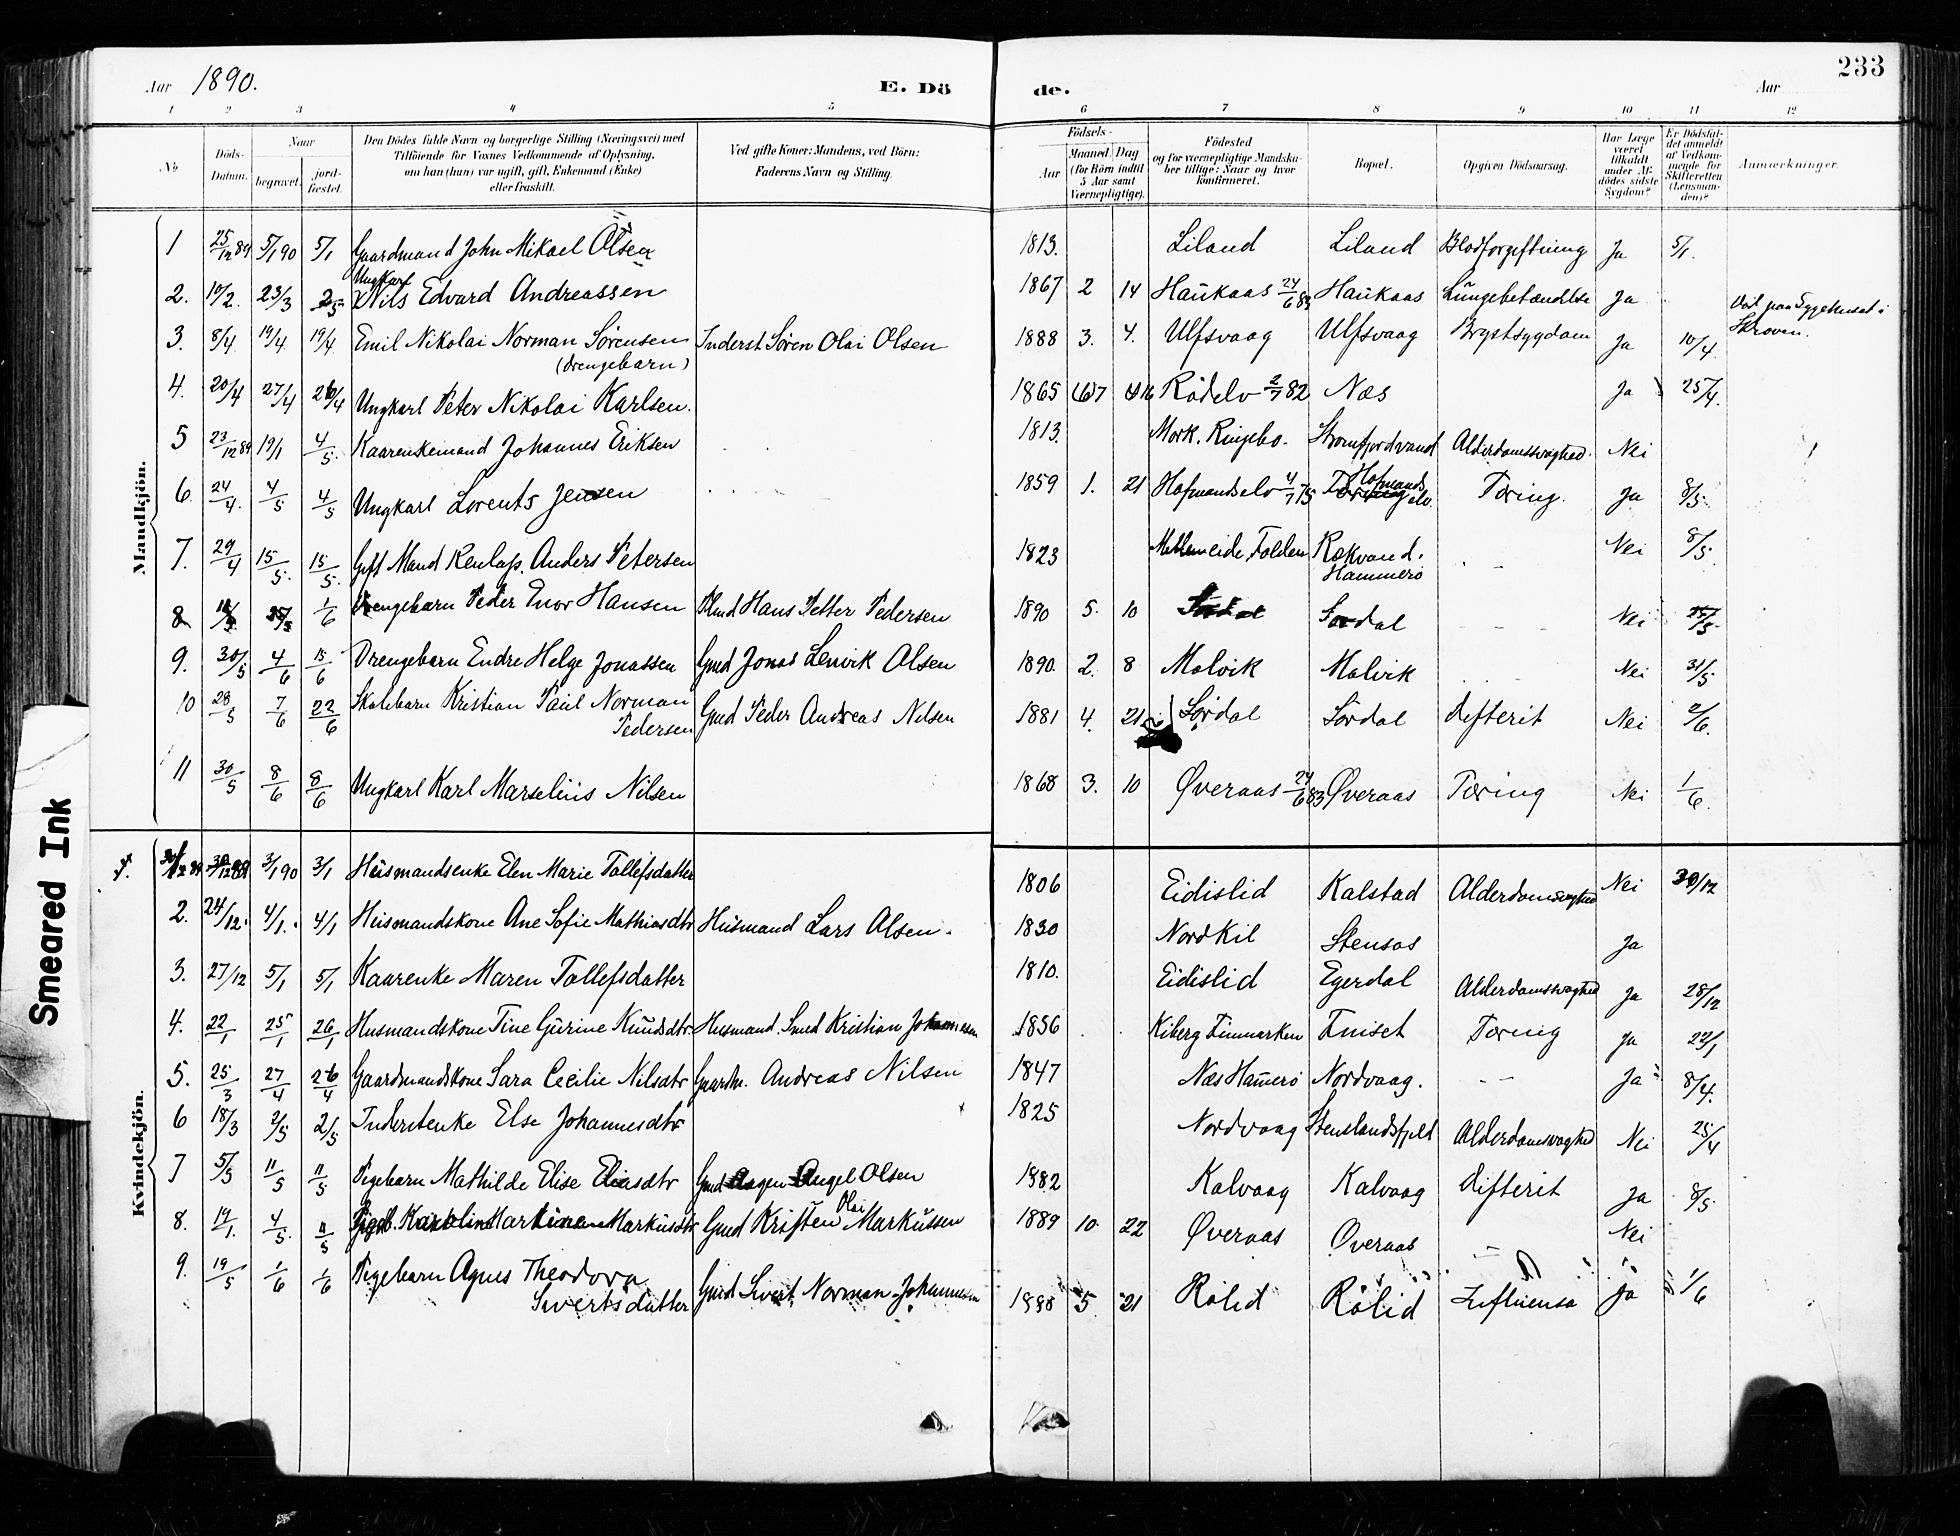 Aar 1890. E. Dö
de. Aar 233
1 2 3 4 5 6 7 8 9 10 11 12
No
Döds-Datum.
Naar
begravet.
jord-fæstet.
Den Dödes fulde Navn og borgerlige Stilling (Næringsvei) med
Tilföiende for Voxnes Vedkommende af Oplysning,
om han (hun) var ugift, gift, Enkemand (Enke)
eller fraskilt.
Ved gifte Koner: Mandens, ved Börn:
Faderens Navn og Stilling.
Födsels-
Aar
Maaned Dag
(for Börn indtil
5 Aar samt
Værnepligtige).
Födested
og for værnepligtige Mandska-
ber tillige: Naar og hvor
konfirmeret.
Bopæl.
Opgiven Dödsaarsag.
Har Læge
været
tilkaldt
under Af-
dödes sidste
Sygdom?
Er Dödsfal-
det anmeldt
af Vedkom-
mende for
Skifteretten
(Lensman-
den)?
Anmærkninger.
Mandkjön.
1 25/12 89 5/1 90 5/1 Gaardmand John Mikael Olsen 1813. Liland Liland Blodforgiftning Ja 5/1.
2. 10/2. 23/3 Ungkarl Nils Edvard Andreassen 1867 2 14 Haukaas 24/6 83 Haukaas Lungebetændelse Ja Död paa Sygehuset i Skroven.
3. 8/4 19/4 19/4 Emil Nikolai Norman Sørensen (Drengebarn) Inderst Søren Olai Olsen 1888 3. 4. Ulfsvaag Ulfsvaag Brystsygdom Ja 10/4.
4. 20/4 27/4 26/4 Ungkarl Peter Nikolai Karlsen. 1865 (6)7 16 Rødelv 2/7 82 Næs Ja 25/4.
5 23/12 89 19/1 4/5. Kaarenkemand Johannes Eriksen 1813. Mork. Ringebo. Strømfjordvand Alderdomssvaghed. Nei
6. 24/4. 4/5 4/5 Ungkarl Lorents Jensen 1859 1. 21 Hofmandselv 4/7 75 Hofmandselv. Tæring. Ja 8/5.
7. 29/4 15/5. 15/5. Gift Mand Kenlap. Anders Petersen 1823 eide Folden Rækvand. Hammerö Nei 8/5
8 1/6 Drengebarn Peder Enor Hansen Hans Petter Pedersen 1890 5. 10 Sördal Nei
9. 30/5 4/6 15/6 Drengebarn Endre Helge Jonassen Gmd Jonas Lenvik Olsen 1890 2. 8 Malvik Malvik Nei 31/5
10 28/5 7/6 22/6 Skolebarn Kristian Paul Norman Pedersen Gmd Peder Andreas Nilsen 1881 4. 21 Sørdal Sørdal Difterit Nei 2/6.
11 30/5 8/6 8/6 Ungkarl Karl Marselius Nilsen 1868 3. 10 Øveraas 24/6 83 Øveraas Tæring Nei 1/6.
Kvindekjön.
1. 30/12 89 3/1 90 3/1 Husmandsenke Elen Marie Tollefsdatter 1806 Eidislid Kalstad Alderdomssvaghed Nei 30/12
2. 24/12. 4/1. 4/1 Husmandskone Ane Sofie Mathiasdtr Husmand Lars Olsen. 1830 Nordkil Stensos Ja
3. 27/12 5/1 5/1 Kaarenke Maren Tollefsdatter 1810. Eidislid Egerdal Alderdomssvaghed Ja 28/12
4. 22/1 25/1 26/1 Husmandskone Tine Gurine Knudsdtr. Husmand. Smed Kristian Johannesen 1856 Kiberg Finmarken Finset Tæring Ja 22/1
5. 25/3 27/4 26/4 Gaardmandskone Sara Cecilie Nilsdtr Gaardm. Andreas Nilsen 1847 Næs Hamerö Nordvaag. Ja 8/4.
6 18/3 2/5 2/5 Inderstenke Else Johannesdtr 1825 Nordvaag Stenslandsfjeld Alderdomssvaghed Nei 25/4
7 5/3 11/5 11/5 Pigebarn Mathilde Elise Eliasdtr Gmd Angel Olsen 1882 Kalvaag Kalvaag Difterit Ja 8/5
8. 19/1. 4/5. 11/5 Pigeb. Karoline Martine Markusdtr Gmd Kristen Olai Markussen 1889 10. 22 Øveraas Øveraas Nei
9. 19/5 1/6 1/6 Pigebarn Agnes Theodora Sivertsdatter Gmd Sivert Norman Johannesen 5 21 Rölid Rölid Influensa Ja 1/6
Smeared Ink